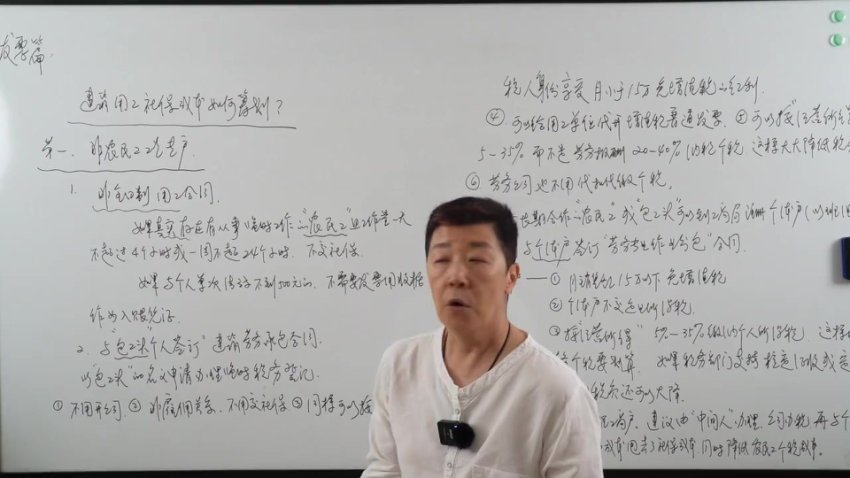 发票篇
建筑用工社保成本如何筹划?
第一、
1. 非全日制用工合同.
如果真实存在有从事临时工作的"农民工"且工作量一天
不超过4个小时或一周不超24个小时. 不交社保.
如果与个人单次结算不到500元的. 不需要发票用收据
作为入账凭证.
2. 与"包工头"个人签订"建筑劳务承包合同.
以"包工头"的名义申请办理临时税务登记.
①不用开公司. ②非雇佣关系. 不用交社保 ③同样可以按
税人身份享受 月小于15万免增值税的红利.
④ 可以给用工单位代开增值税普通发票. ⑤可以按"经营所得
5-35% 而不是劳务报酬20-40%的税个税, 这样大大降低税
⑥ 劳务公司也不用代扣代缴个税.
长期合作"农民工"或"包工头"可以到工商局注册个体户(以班组
与个体户签订"劳务专业作业分包"合同.
① 月销售额15万以下 免增值税
② 个体户不交企业所得税.
③ 按"经营所得" 5%-35%缴纳个人所得税, 这样
个税要划算. 如果税务部门支持核定征收或定
税负还可以大降.
工商户, 建议由"中间人"办理, 公司办税 再与个
成本 甩去了社保成本 同时降低农民工个税税率.